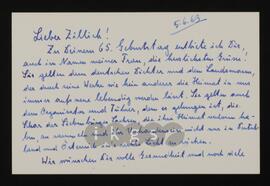 5.6.63
Lieber Zillich!
Zu Deinem 65. Geburtstag entbiete ich Dir,
auch im Namen meiner Frau, die herzlichsten Grüsse!
Sie gelten dem deutschen Dichter und dem Landsmann,
der durch seine Werke wie kein anderer die Heimat in uns
immer aufs neue lebendig werden lässt. Sie gelten auch
dem Organisator und Führer, dem es gelungen ist, die
Schar der Siebenbürger Sachsen, die ihre Heimat verloren ha-
ben, zu sammeln und nicht nur in Deutsch-
land und Österreich
Wir wünschen Dir volle Gesundheit und noch viele